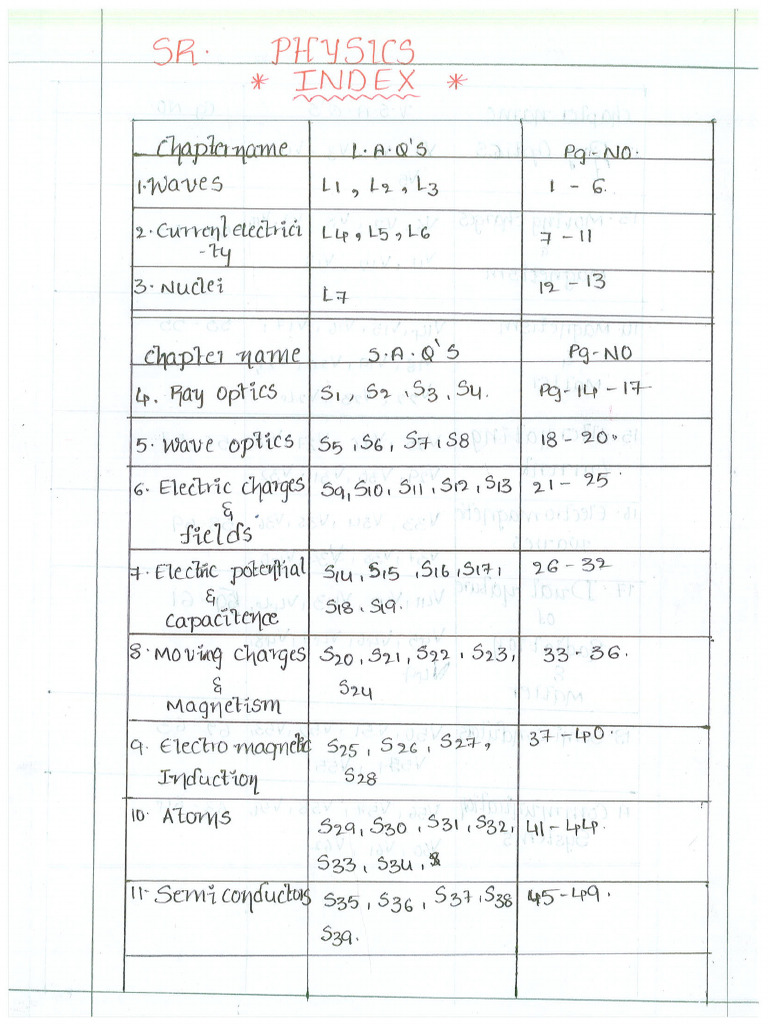 SR. PHYSICS
* INDEX *
Chapter name L.A.Q'S Pg-NO.
1. Waves L1, L2, L3 1 - 6.
2. Current electrici L4, L5, L6 7 - 11
-ty
3. Nuclei L7 12 - 13
Chapter name S.A.Q'S Pg-NO
4. Ray optics S1, S2, S3, S4. Pg-14-17
5. Wave optics S5, S6, S7, S8 18 - 20.
6. Electric charges S9, S10, S11, S12, S13 21 - 25.
&
fields.
7. Electric potential S14, S15, S16, S17, 26 - 32
& S18, S19.
capacitence
8. Moving charges S20, S21, S22, S23, 33 - 36.
& S24
Magnetism
9. Electro magnetic S25, S26, S27, 37-40.
Induction S28
10. Atoms S29, S30, S31, S32, 41-44.
S33, S34,
11- Semi conductors S35, S36, S37, S38 45-49.
S39.